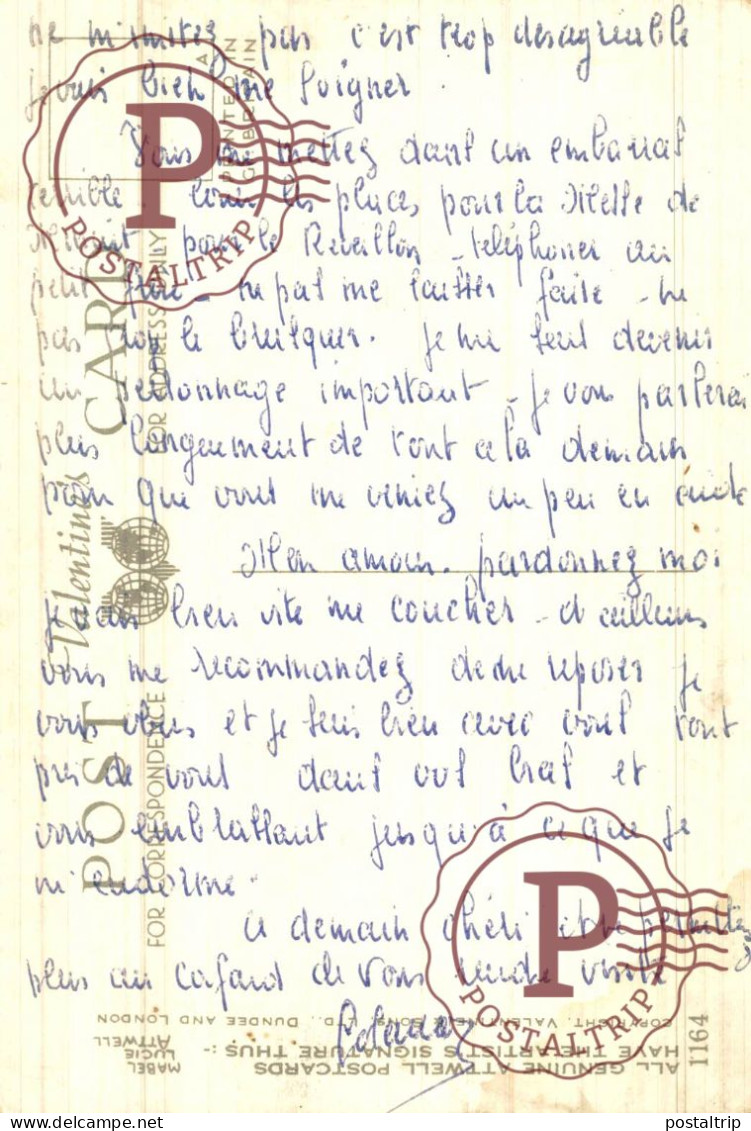 ne m'imitez pas c'est trop désagréable
je vais bien me soigner.
Vous me mettez dans un embarras
terrible. les places pour la Messe de
Minuit, pour le Reveillon - téléphoner au
petit - ne pas me laisser faire - ne
pas le brusquer. Je me sens devenir
un personnage important - Je vous parlerai
plus longuement de tout cela demain
pour que vous me veniez un peu en aide
Mon amour. pardonnez moi
je vais bien vite me coucher - d'ailleurs
vous me recommandez de me reposer je
vous obéis et je suis bien avec vous tout
près de vous dans vos bras et
vous embrassant jusqu'à ce que je
m'endorme.
A demain chéri
plus au cafard de vous rendre visite
POST CARD
Valentine's
FOR CORRESPONDENCE
FOR ADDRESS ONLY
PRINTED IN
GT. BRITAIN
ALL GENUINE ATTWELL POSTCARDS
HAVE THE ARTIST'S SIGNATURE THUS :-
MABEL
LUCIE
ATTWELL
COPYRIGHT. VALENTINE & SONS, LTD., DUNDEE AND LONDON
1164
P
POSTALTRIP
P
POSTALTRIP
www.delcampe.net
postaltrip